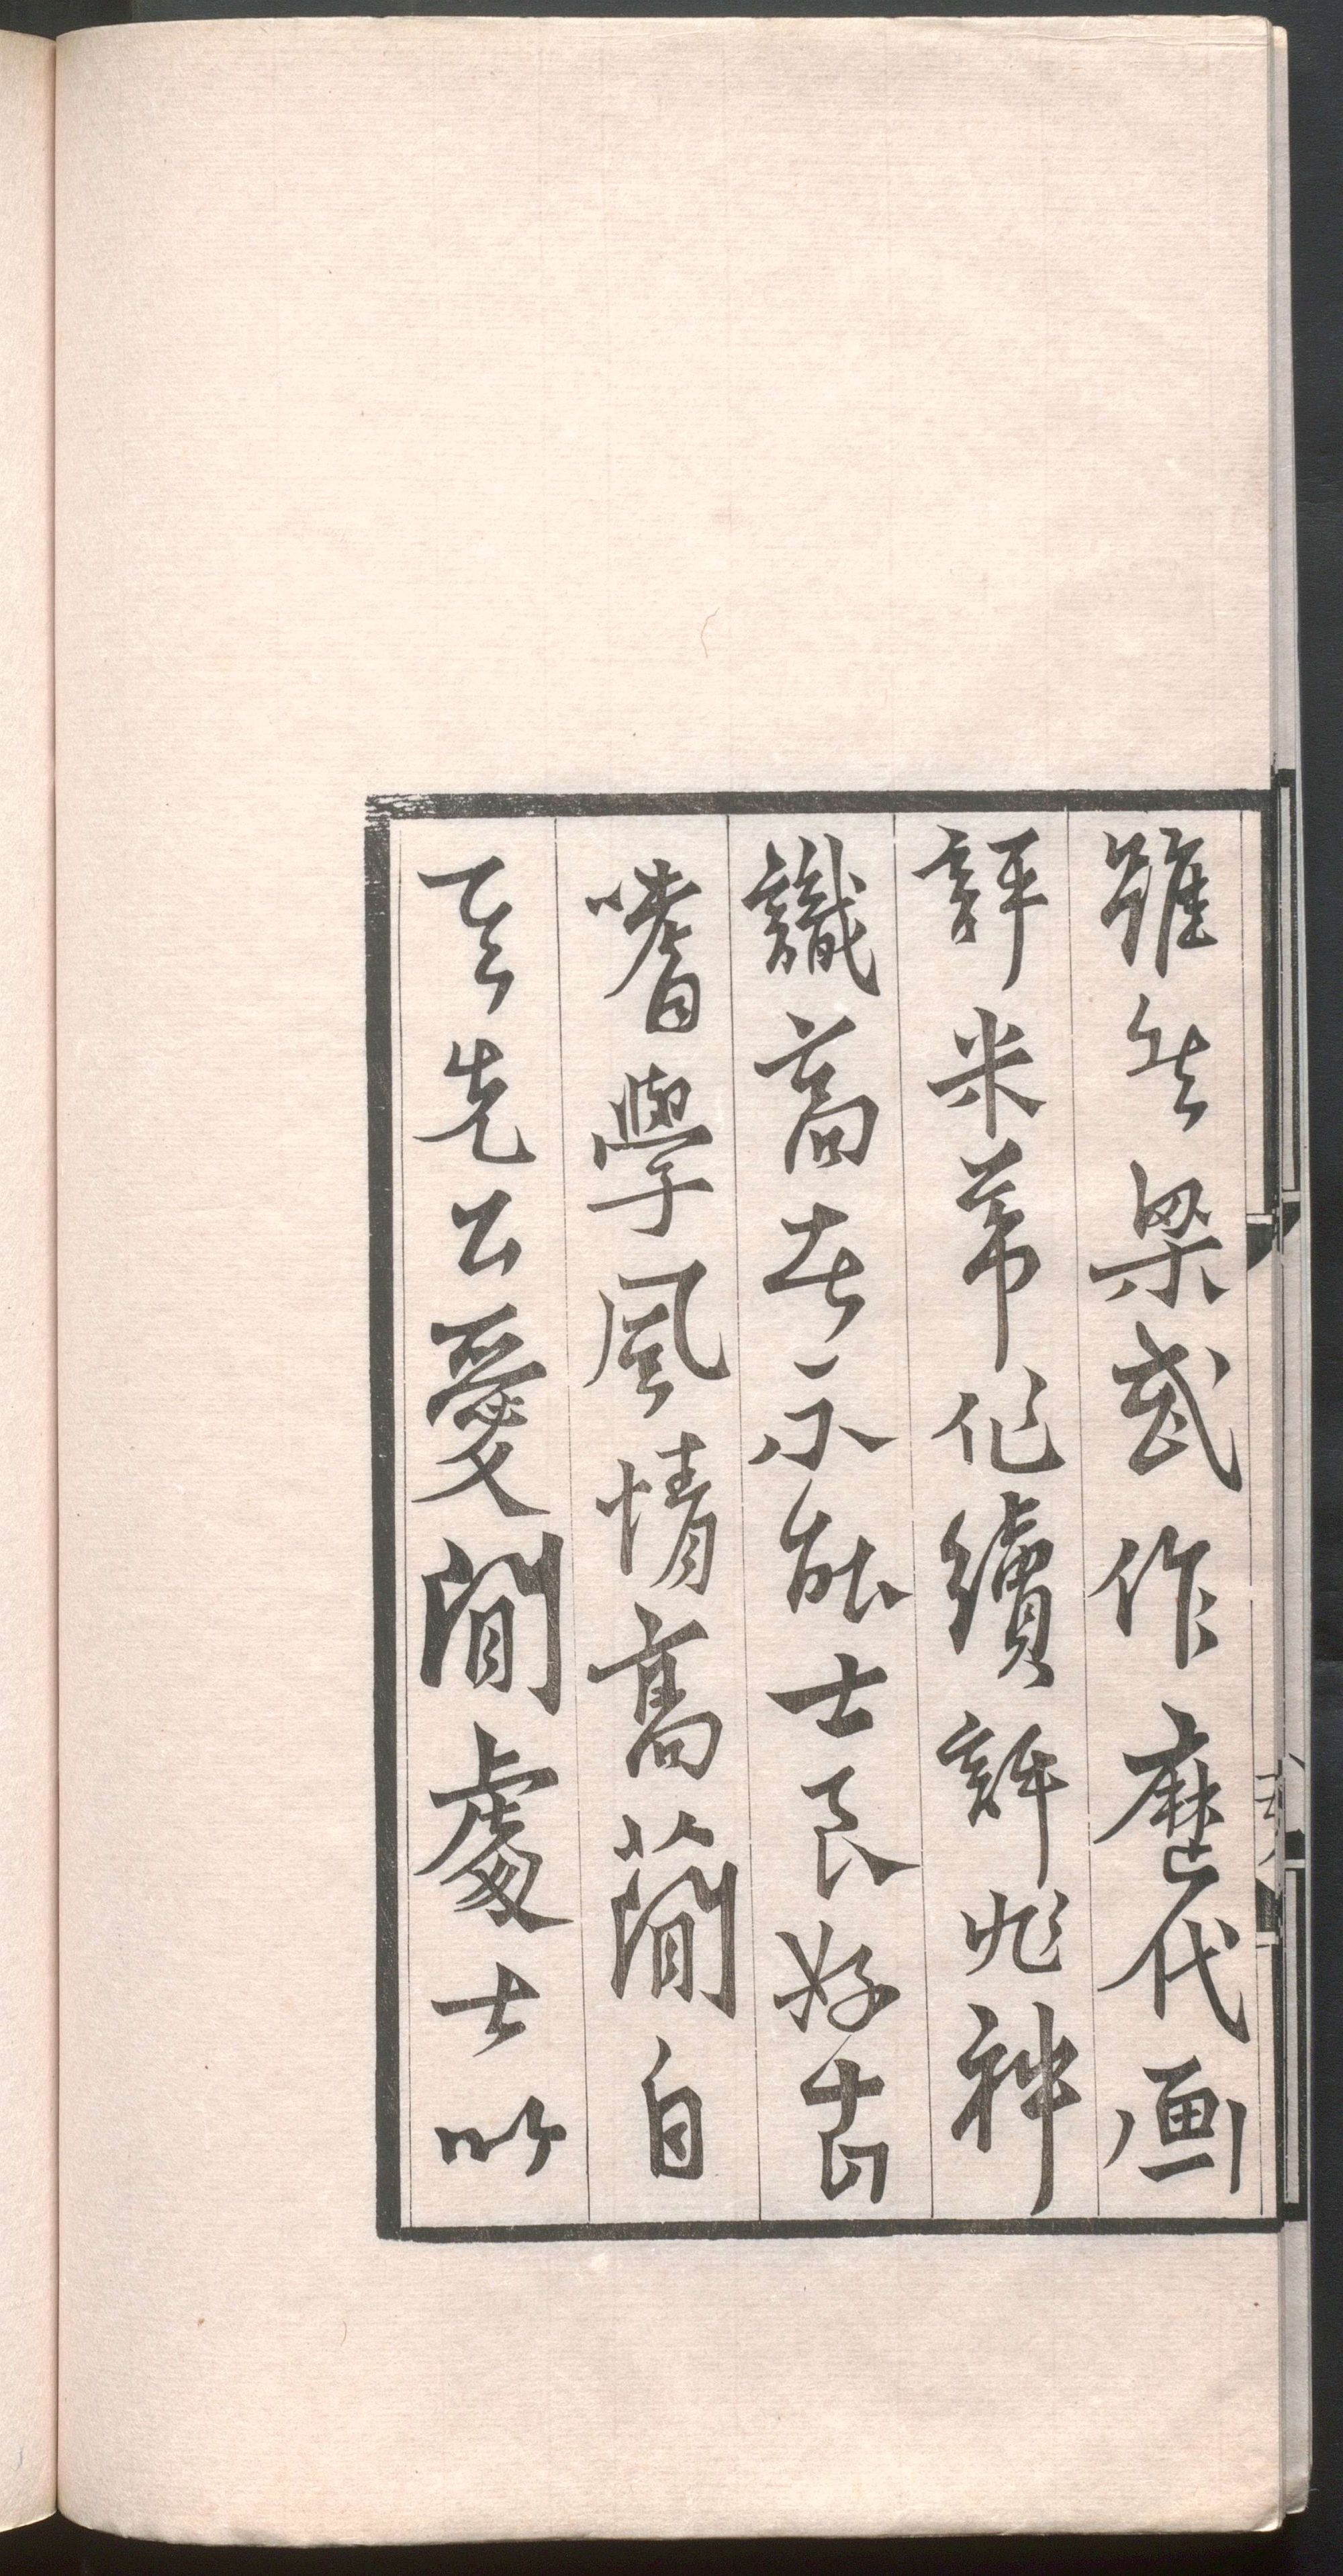 雖然梁武作歷代画
評米芾作續評非神
識高者不能士良好古
嗜學風情高簡自
其先公愛閒處士以